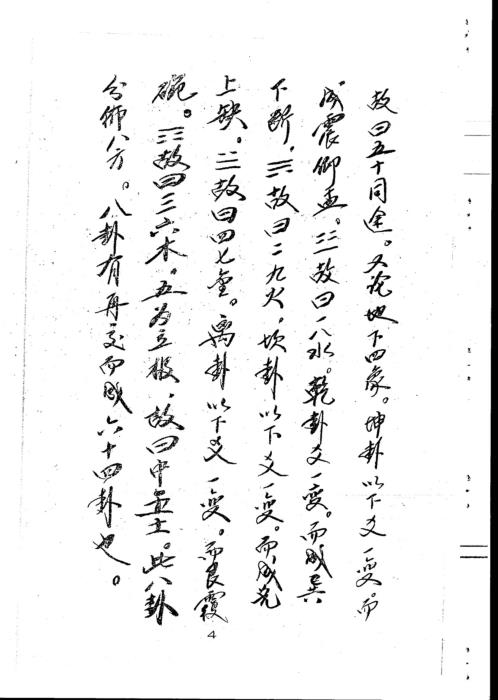 故曰五十同途。又論地下四象。坤卦以下爻一變。而
成震仰盂。☳故曰一八水。乾卦爻一變。而成巽
下斷，☴故曰二九火，坎卦以下爻一變。而成兌
上缺。☱故曰四七金。离卦以下爻一变。而艮覆
碗。☶故曰三六木。五為立极，故曰中宫土。此八卦
分佈八方。八卦有再交而成六十四卦也。
4